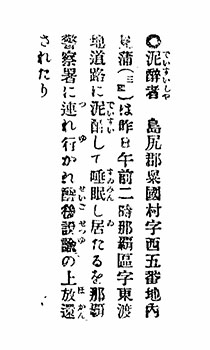 ◉泥醉者　島尻郡粟國村字西五番地內
蒲(三
)は昨日午前二時那覇區字東渡
地道路に泥醉して睡眠し居たるを那覇
警察署に連れ行かれ醉後說諭の上放還
されたり